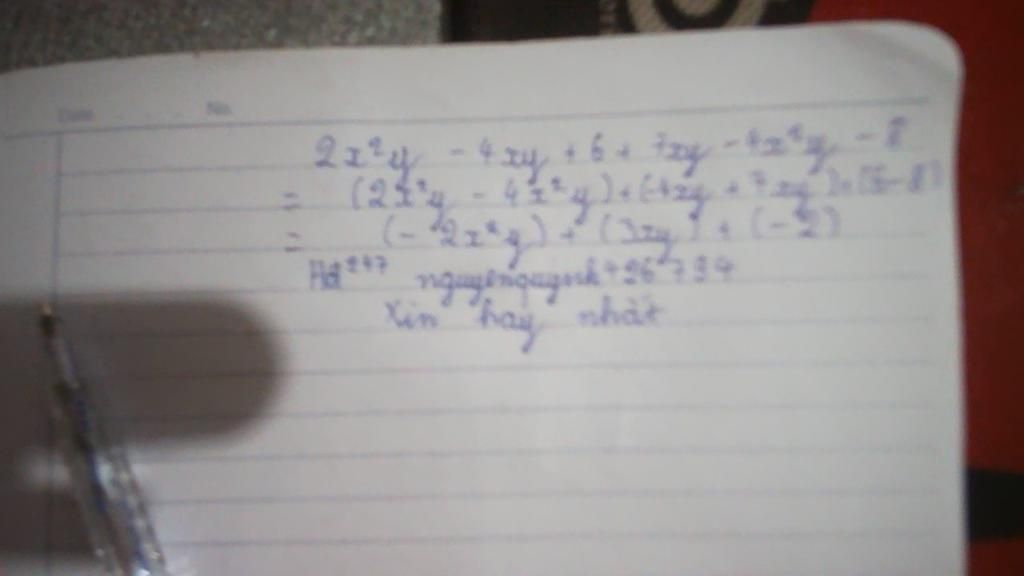 Date No.
2x²y - 4xy + 6 + 7xy - 4x²y - 8
= (2x²y - 4x²y) + (-4xy + 7xy) + (6-8)
= (-2x²y) + (3xy) + (-2)
Hd²⁴⁷ nguyenquynh
Xin hay nhất